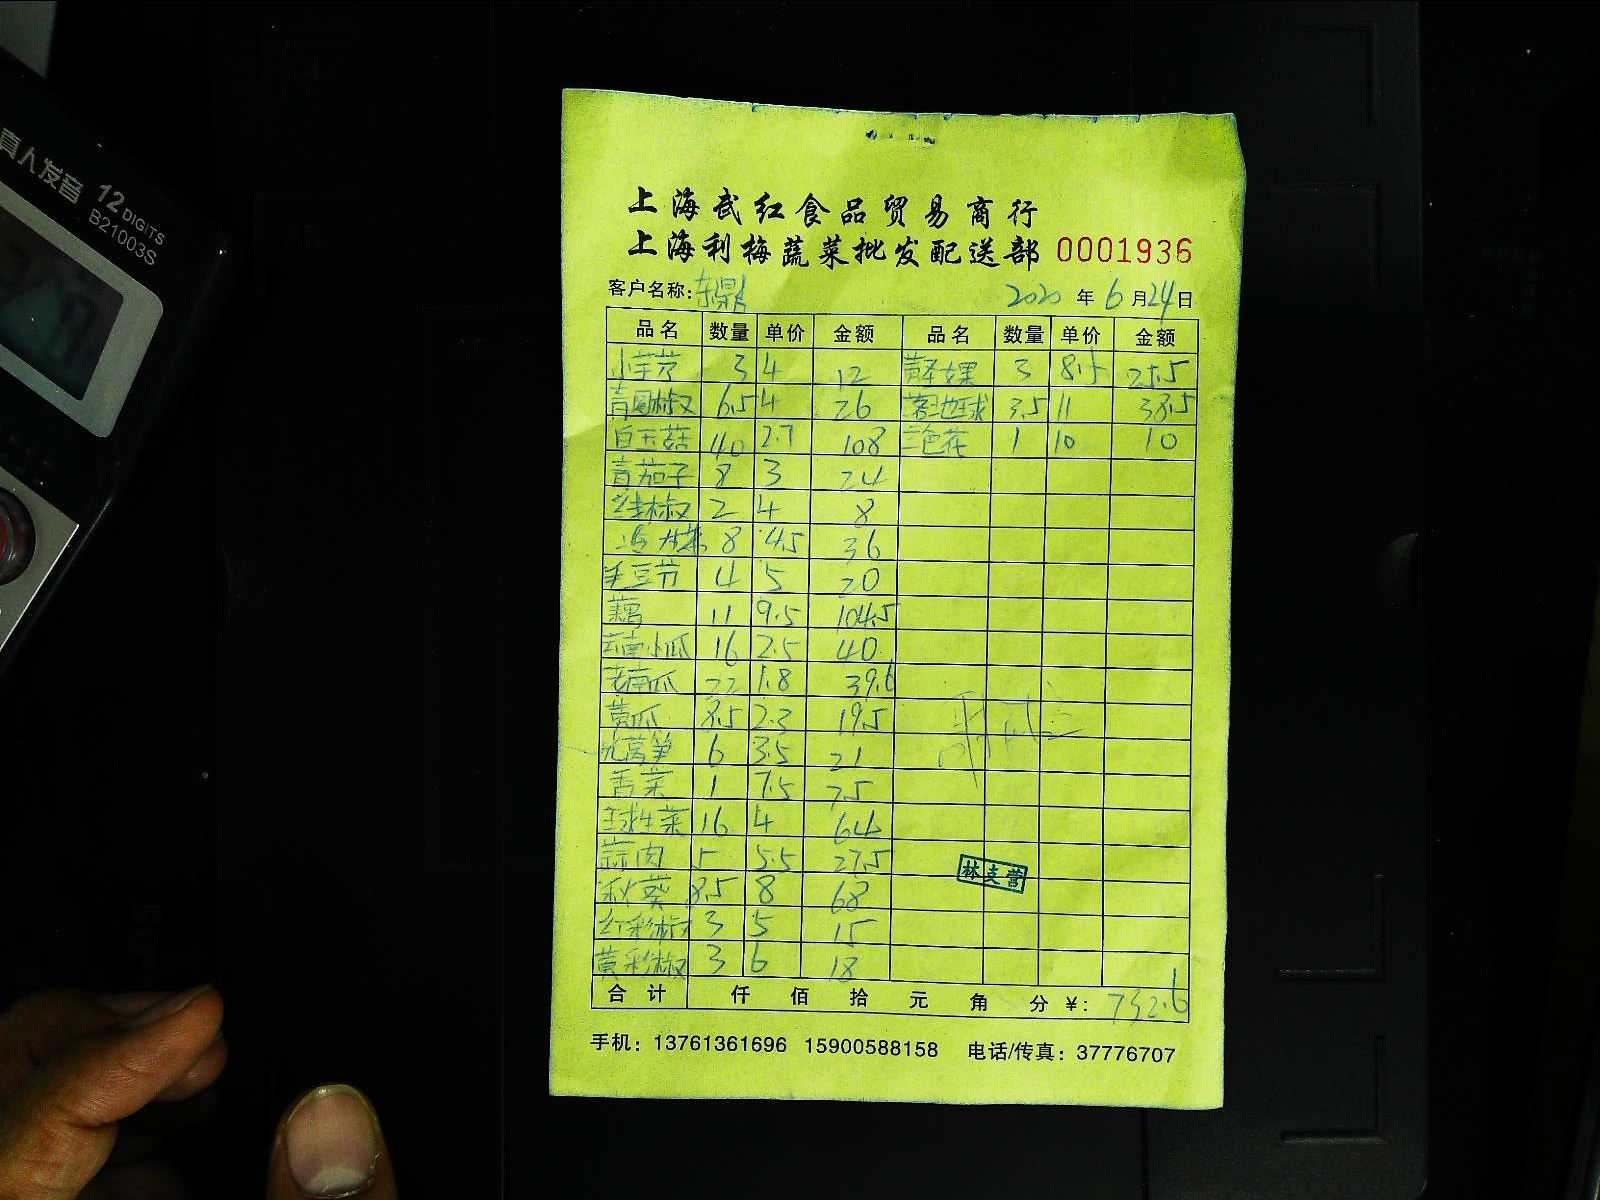 真人发音 12 DIGITS
B21003S
上海武红食品贸易商行
上海利梅蔬菜批发配送部 0001936
客户名称: 东鼎 2020 年 6 月 24 日
品名 数量 单价 金额 品名 数量 单价 金额
小芋艿 3 4 12 3 8.5 25.5
青圆椒 6.5 4 26 3.5 11 38.5
白玉菇 40 2.7 108 三色花 1 10 10
青茄子 8 3 24
线椒 2 4 8
8 4.5 36
毛豆节 4 5 20
藕 11 9.5 104.5
云南小瓜 16 2.5 40
老南瓜 22 1.8 39.6
黄瓜 8.5 2.3 19.5
光莴笋 6 3.5 21
香菜 1 7.5 7.5
球生菜 16 4 64
蒜肉 5 5.5 27.5
秋葵 8.5 8 68
红彩椒 3 5 15
黄彩椒 3 6 18
林支营
合计 仟 佰 拾 元 角 分 ¥: 732.6
手机: 13761361696 15900588158 电话/传真: 37776707